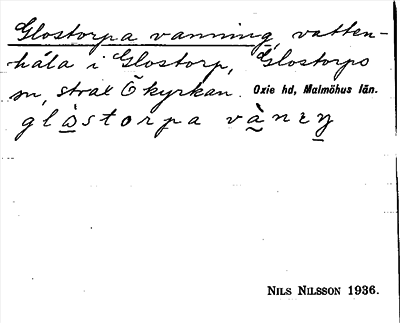 Glostorpa vanning, vatten-
håla i Glostorp, Glostorps
sn, strax Ö kyrkan. Oxie hd, Malmöhus län.
glòstorpa vànıŋ
NILS NILSSON 1936.